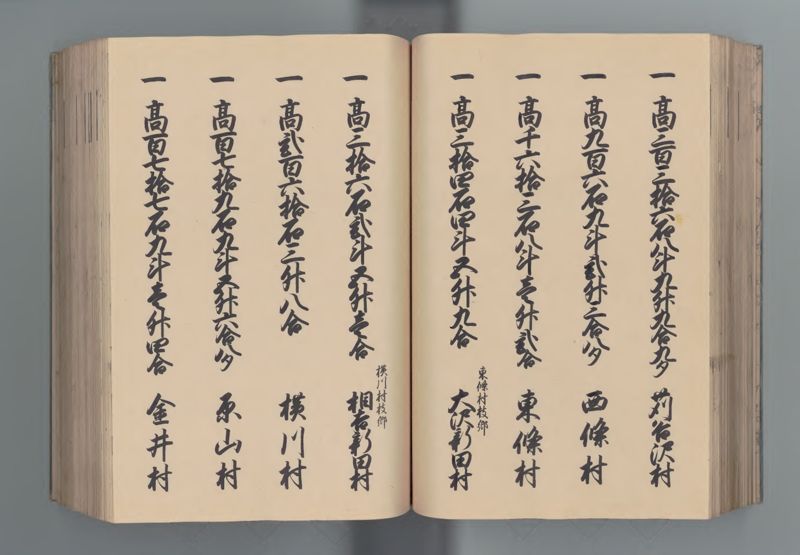 一 高三百三拾六石八斗九升九合九夕 苅谷沢村
一 高九百六石九斗弐升三合八夕 西條村
一 高千六拾三石八斗壱升弐合 東條村
東條村枝郷
一 高三拾四石四斗五升九合 大沢新田村
横川村枝郷
一 高三拾六石弐斗五升壱合 相吉新田村
一 高弐百六拾石三升八合 横川村
一 高百七拾九石九斗五升六合八夕 原山村
一 高百七拾七石九斗壱升四合 金井村